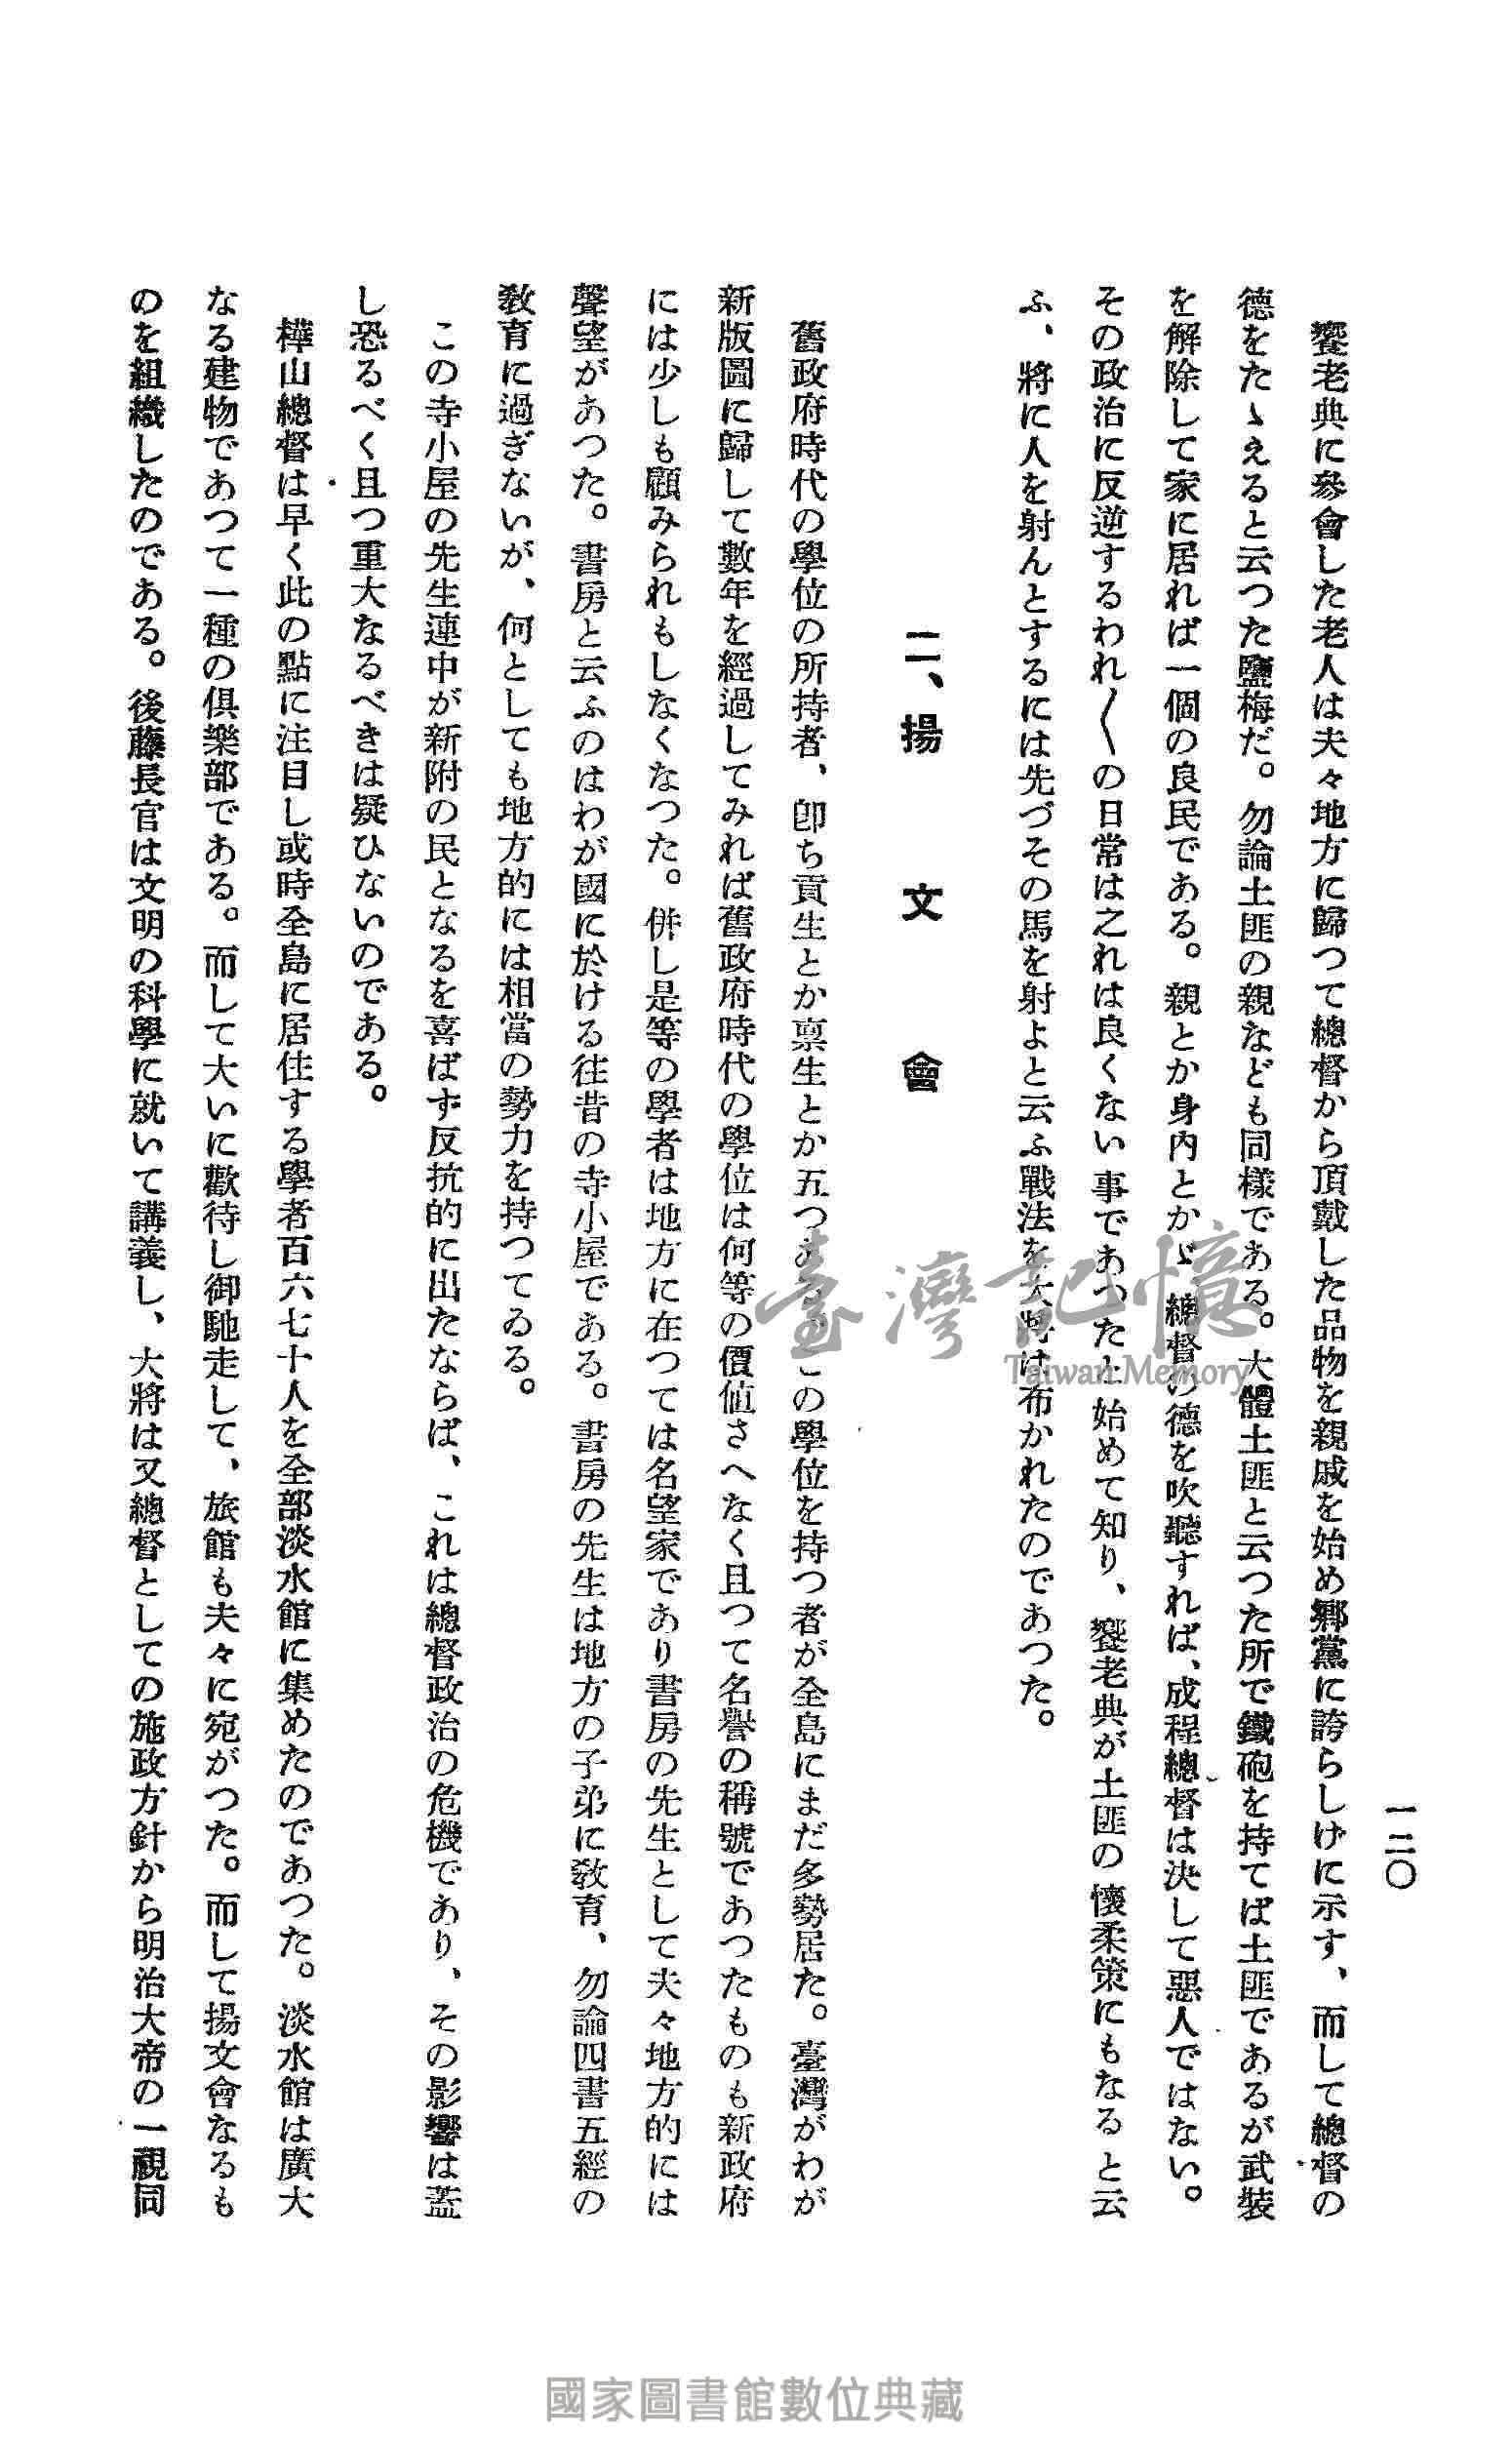 一二〇
饗老典に參會した老人は夫々地方に歸つて總督から頂戴した品物を親戚を始め鄕黨に誇らしげに示す、而して總督の
德をたゝえると云つた鹽梅だ。勿論土匪の親なども同樣である。大體土匪と云つた所で鐵砲を持てば土匪であるが武裝
を解除して家に居れば一個の良民である。親とか身內とかゞ、總督の德を吹聽すれば、成程總督は決して惡人ではない。
その政治に反逆するわれ〳〵の日常は之れは良くない事であつたと始めて知り、饗老典が土匪の懷柔策にもなると云
ふ、將に人を射んとするには先づその馬を射よと云ふ戰法を大將は布かれたのであつた。
二、揚文會
舊政府時代の學位の所持者、卽ち貢生とか禀生とか五つある。この學位を持つ者が全島にまだ多勢居た。臺灣がわが
新版圖に歸して數年を經過してみれば舊政府時代の學位は何等の價値さへなく且つて名譽の稱號であつたものも新政府
には少しも顧みられもしなくなつた。併し是等の學者は地方に在つては名望家であり書房の先生として夫々地方的には
聲望があつた。書房と云ふのはわが國に於ける往昔の寺小屋である。書房の先生は地方の子弟に敎育、勿論四書五經の
敎育に過ぎないが、何としても地方的には相當の勢力を持つてゐる。
この寺小屋の先生連中が新附の民となるを喜ばず反抗的に出たならば、これは總督政治の危機であり、その影響は蓋
し恐るべく且つ重大なるべきは疑ひないのである。
樺山總督は早く此の點に注目し或時全島に居住する學者百六七十人を全部淡水館に集めたのであつた。淡水館は廣大
なる建物であつて一種の俱樂部である。而して大いに歡待し御馳走して、旅館も夫々に宛がつた。而して揚文會なるも
のを組織したのである。後藤長官は文明の科學に就いて講義し、大將は又總督としての施政方針から明治大帝の一視同
臺灣記憶
Taiwan Memory
國家圖書館數位典藏